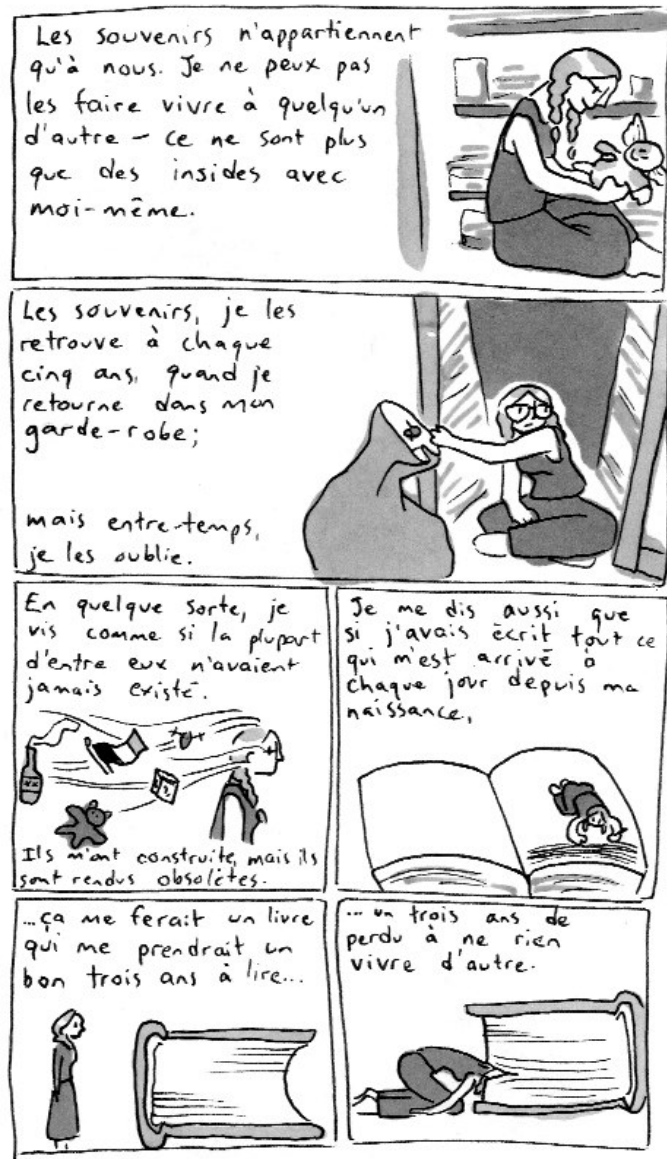 Les souvenirs n'appartiennent
qu'à nous. Je ne peux pas
les faire vivre à quelqu'un
d'autre – ce ne sont plus
que des insides avec
moi-même.
Les souvenirs, je les
retrouve à chaque
cinq ans, quand je
retourne dans mon
garde-robe;
mais entre-temps,
je les oublie.
En quelque sorte, je
vis comme si la plupart
d'entre eux n'avaient
jamais existé.
Ils m'ont construite, mais ils
sont rendus obsolètes.
Je me dis aussi que
si j'avais écrit tout ce
qui m'est arrivé à
chaque jour depuis ma
naissance,
...ça me ferait un livre
qui me prendrait un
bon trois ans à lire...
...un trois ans de
perdu à ne rien
vivre d'autre.